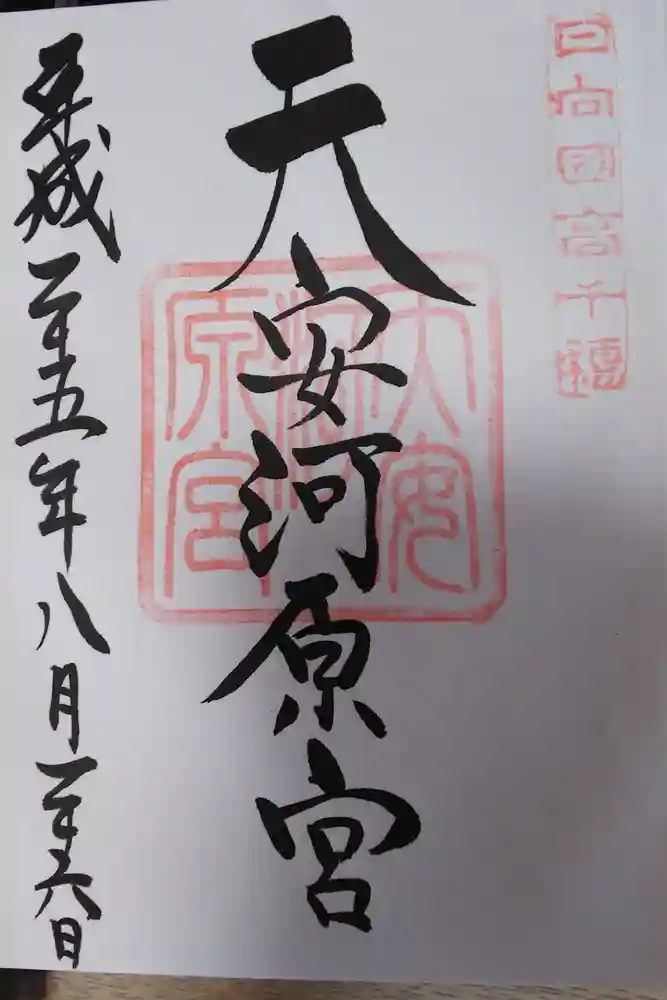 日向国高千穂
天安河原宮
天安
河
原宮
平成二十五年八月二十六日